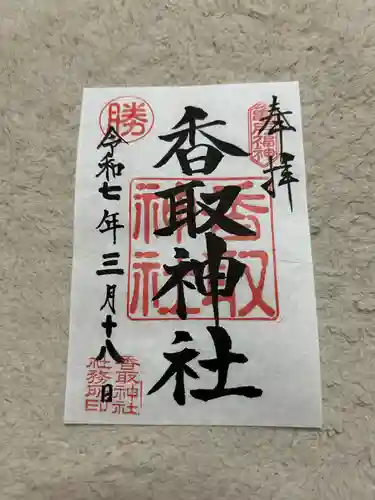 奉拝
亀戸福神
香取神社
香取神社
令和七年三月十八日
勝
香取神社
社務所印